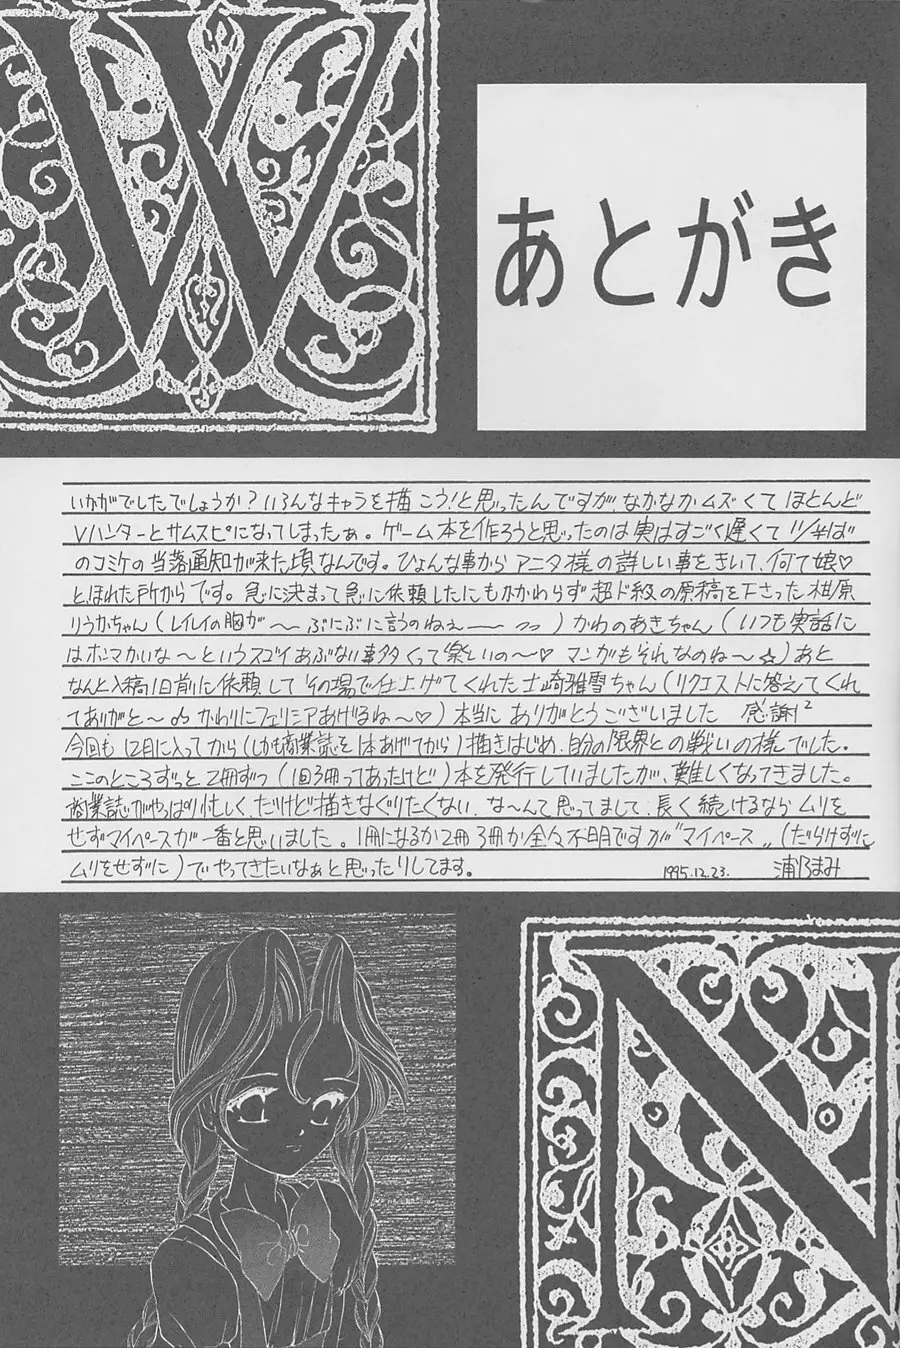 W
あとがき
いかがでしたでしょうか?いろんなキャラを描こう!と思ったんですがなかなかムズくてほとんど
Vハンターとサムスピになってしまったぁ。ゲーム本を作ろうと思ったのは実はすごく遅くて11/半ば
のコミケの当落通知が来た頃なんです。ひょんな事からアニタ様の詳しい事をきいて、何て娘♡
とほれた所からです。急に決まって急に依頼したにもかかわらず超ド級の原稿を下さった 椢原
りうかちゃん(レイレイの胸が〜ぷにぷに言うのねぇ── )かわのあきちゃん(いつも実話に
はホンマかいな〜というスゴイあぶない事多くって楽しいの〜♡マンガもそれなのね〜☆)あと
なんと入稿1日前に依頼してその場で仕上げてくれた士崎雅雪ちゃん(リクエストに答えてくれ
てありがと〜♪かわりにフェリシアあげるね〜♡)本当にありがとうございました 感謝²
今回も12月に入ってから(しかも商業誌を1本あげてから)描きはじめ、自分の限界との戦いの様でした。
ここのところずっと2冊ずつ(1回3冊ってあったけど)本を発行していましたが、難しくなってきました。
商業誌がやっぱり忙しく、だけど描きなぐりたくない、な〜んて思ってまして、長く続けるならムリを
せずマイペースが一番と思いました。1冊になるか2冊3冊か全々不明ですが"マイペース„(だらけずに
ムリをせずに)でやってきたいなぁと思ったりしてます。 1995.12.23. 浦乃まみ
N